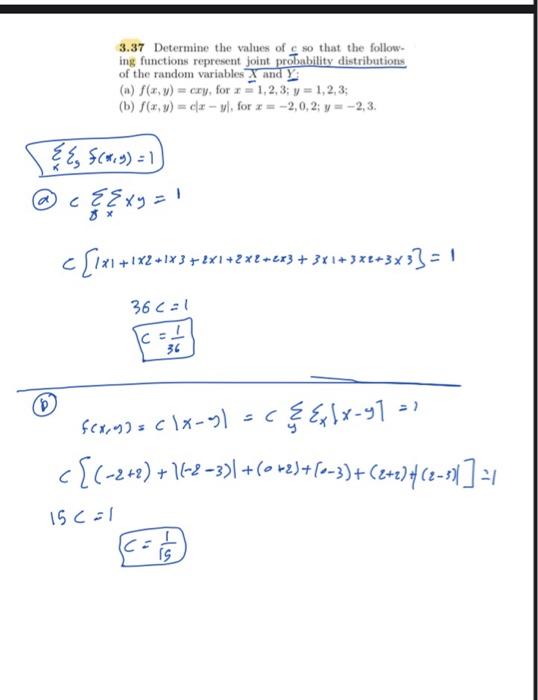 3.37 Determine the values of c so that the follow-
ing functions represent joint probability distributions
of the random variables X and Y:
(a) f(x, y) = cxy, for x = 1, 2, 3; y = 1, 2, 3;
(b) f(x, y) = c|x − y|, for x = −2, 0, 2; y = −2, 3.
Σx Σy f(x,y) = 1
(a) c Σy Σx xy = 1
c [1x1 + 1x2 + 1x3 + 2x1 + 2x2 + 2x3 + 3x1 + 3x2 + 3x3] = 1
36 c = 1
c = 1/36
(b)
f(x,y) = c |x-y| = c Σy Σx |x-y| = 1
c [(-2+2) + |(-2-3)| + (0+2) + |0-3) + (2+2) + |(2-3)|] = 1
15 c = 1
c = 1/15